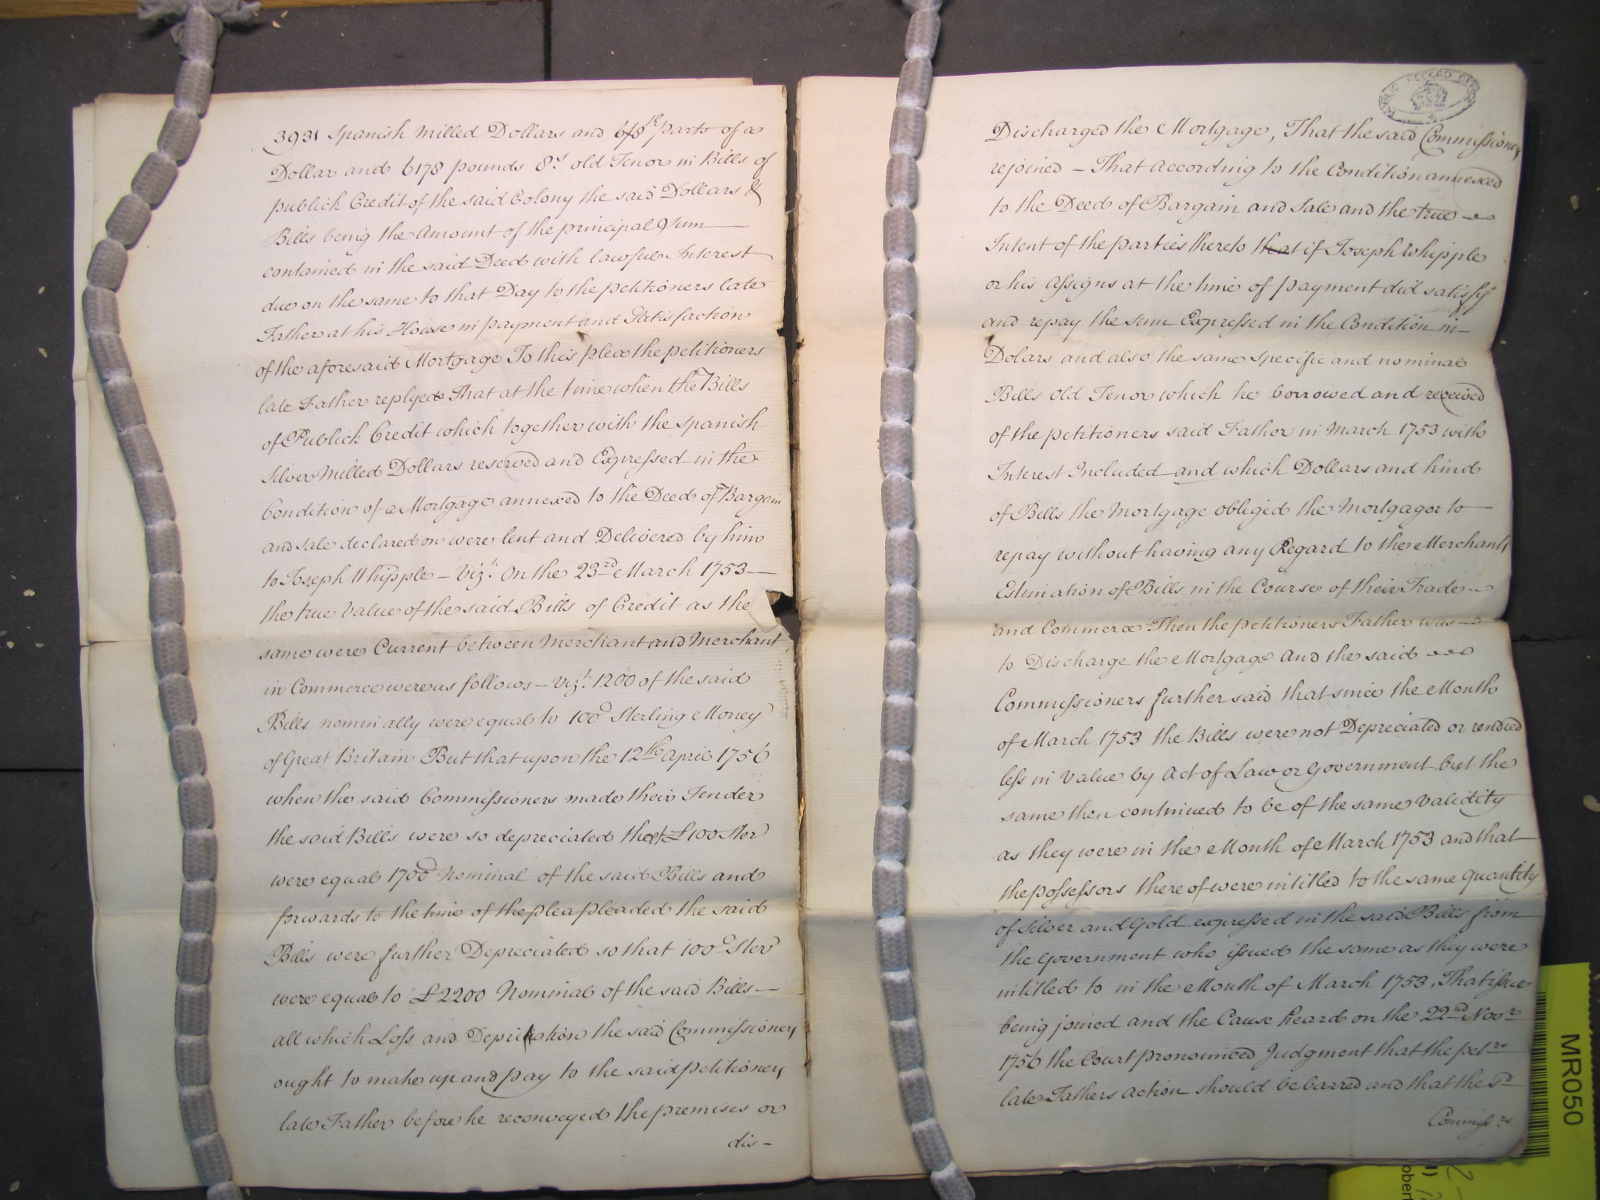 3931 Spanish Milled Dollars and 6/8th parts of a
Dollar and 6178 pounds 8s old Tenor in Bills of
publick Credit of the said Colony the said Dollars &
Bills being the Amount of the principal Sum
contained in the said Deed with lawfull Interest
due on the same to that Day to the petitioners late
Father at his House in payment and Satisfaction
of the aforesaid Mortgage To this plea the petitioners
late Father replyed That at the time when the Bills
of Publick Credit which together with the Spanish
Silver Milled Dollars reserved and Expressed in the
Condition of a Mortgage annexed to the Deed of Bargain
and Sale declared on were lent and Delivered by him
to Joseph Whipple – Vizt. On the 23rd March 1753 –
the true Value of the said Bills of Credit as the
same were Current between Merchant and Merchant
in Commerce were as follows – Vizt. 1200 of the said
Bills nominally were equal to 100 Sterling Money
of Great Britain But that upon the 12th April 1756
when the said Commissioners made their Tender
the said Bills were so depreciated that £100 Ster
were equal 1700 Nominal of the said Bills and
forwards to the time of the plea pleaded the said
Bills were further Depreciated so that 100 Ster
were equal to £2200 Nominal of the said Bills –
all which Loss and Depreciation the said Commissioners
ought to make up and pay to the said petitioners
late Father before he reconveyed the premises or
dis –
PUBLIC RECORD OFFICE
Discharged the Mortgage, That the said Commissioners
rejoined – That according to the Condition annexed
to the Deed of Bargain and Sale and the true
Intent of the parties thereto that if Joseph Whipple
or his Assigns at the time of payment did satisfy
and repay the sum Expressed in the Condition in
Dolars and also the same specific and nominal
Bills Old Tenor which he borrowed and received
of the petitioners said Father in March 1753 with
Interest Included and which Dollars and kind
of Bills the Mortgage obliged the Mortgagor to
repay without having any Regard to the Merchants
Estimation of Bills in the Course of their Trade
and Commerce Then the petitioners Father was
to Discharge the Mortgage And the said
Commissioners further said that since the Month
of March 1753 the Bills were not Depreciated or rendred
less in Value by Act of Law or Government but the
same then continued to be of the same Validity
as they were in the Month of March 1753 and that
the possessors thereof were intitled to the same quantity
of Silver and Gold expressed in the said Bills from
the Government who issued the same as they were
intitled to in the Month of March 1753, That issue
being joined and the Cause heard on the 22nd Novr
1756 the Court pronounced Judgment that the petrs
late Fathers Action should be barred and that the sd
Commissrs
MR050